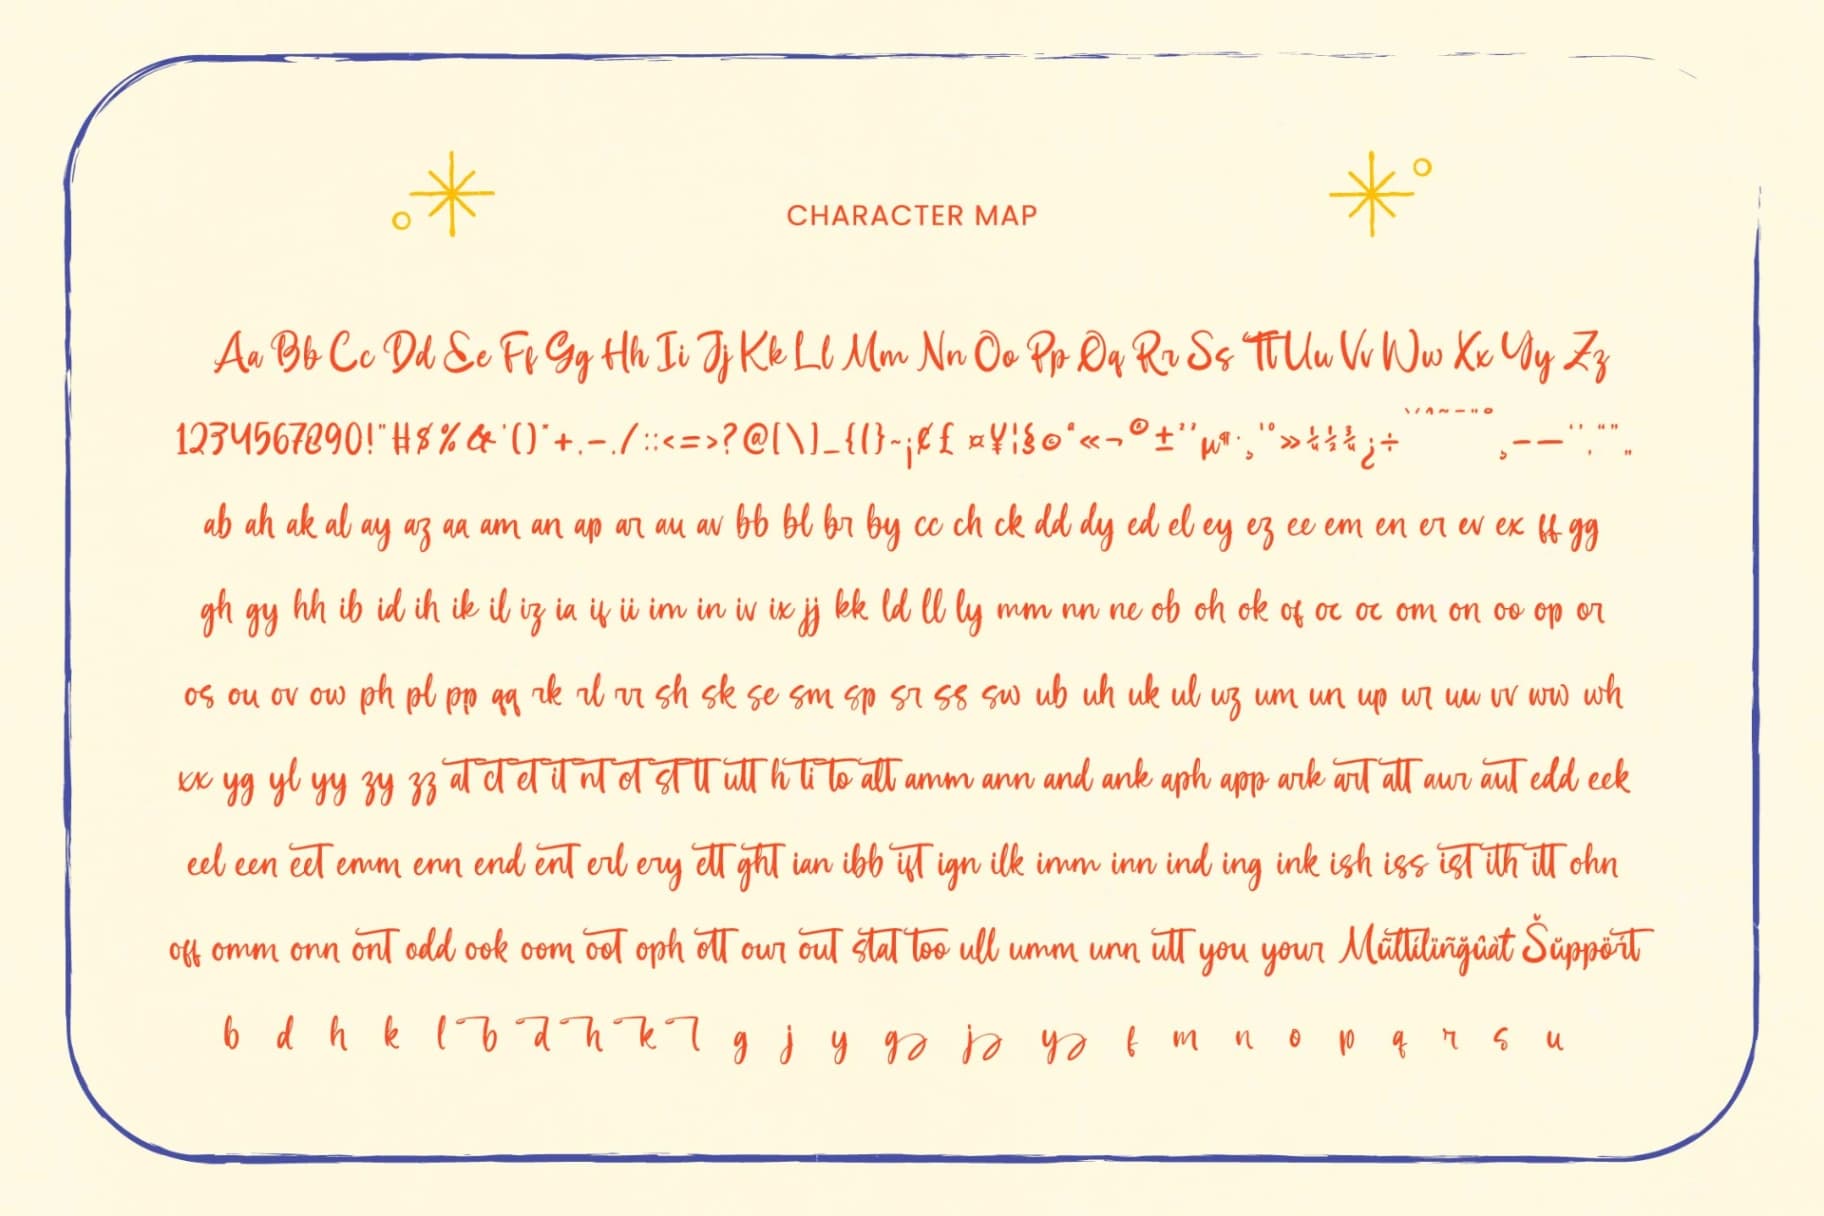 CHARACTER MAP
Aa Bb Cc Dd Ee Ff Gg Hh Ii Jj Kk Ll Mm Nn Oo Pp Qq Rr Ss Tt Uu Vv Ww Xx Yy Zz
1234567890!"#$%&'()*+,-./:;<=>?@[\]_{|}~¡¢£¤¥¦§©ª«¬®±²³µ¶·¸¹º»¼½¾¿÷
ab ah ak al ay az aa am an ap ar au av bb bl br by cc ch ck dd dy ed el ey ez ee em en er ev ex ff gg
gh gy hh ib id ih ik il iz ia if ii im in iv ix jj kk ld ll ly mm nn ne ob oh ok of oc oc om on oo op or
os ou ov ow ph pl pp qq rk rl rr sh sk se sm sp sr ss sw ub uh uk ul uz um un up ur uu vv ww wh
xx yg yl yy zy zz at ct et it nt ot st tt utt h ti to att amm ann and ank aph app ark art att aur aut edd eek
eel een eet emm enn end ent erl ery ett ght ian ibb ift ign ilk imm inn ind ing ink ish iss ist ith itt ohn
off omm onn ont odd ook oom oot oph ott our out stat too ull umm unn utt you your Mũttílïñğûàt Šŭppöŕt
b d h k l b d h k l g j y g j y f m n o p q r s u